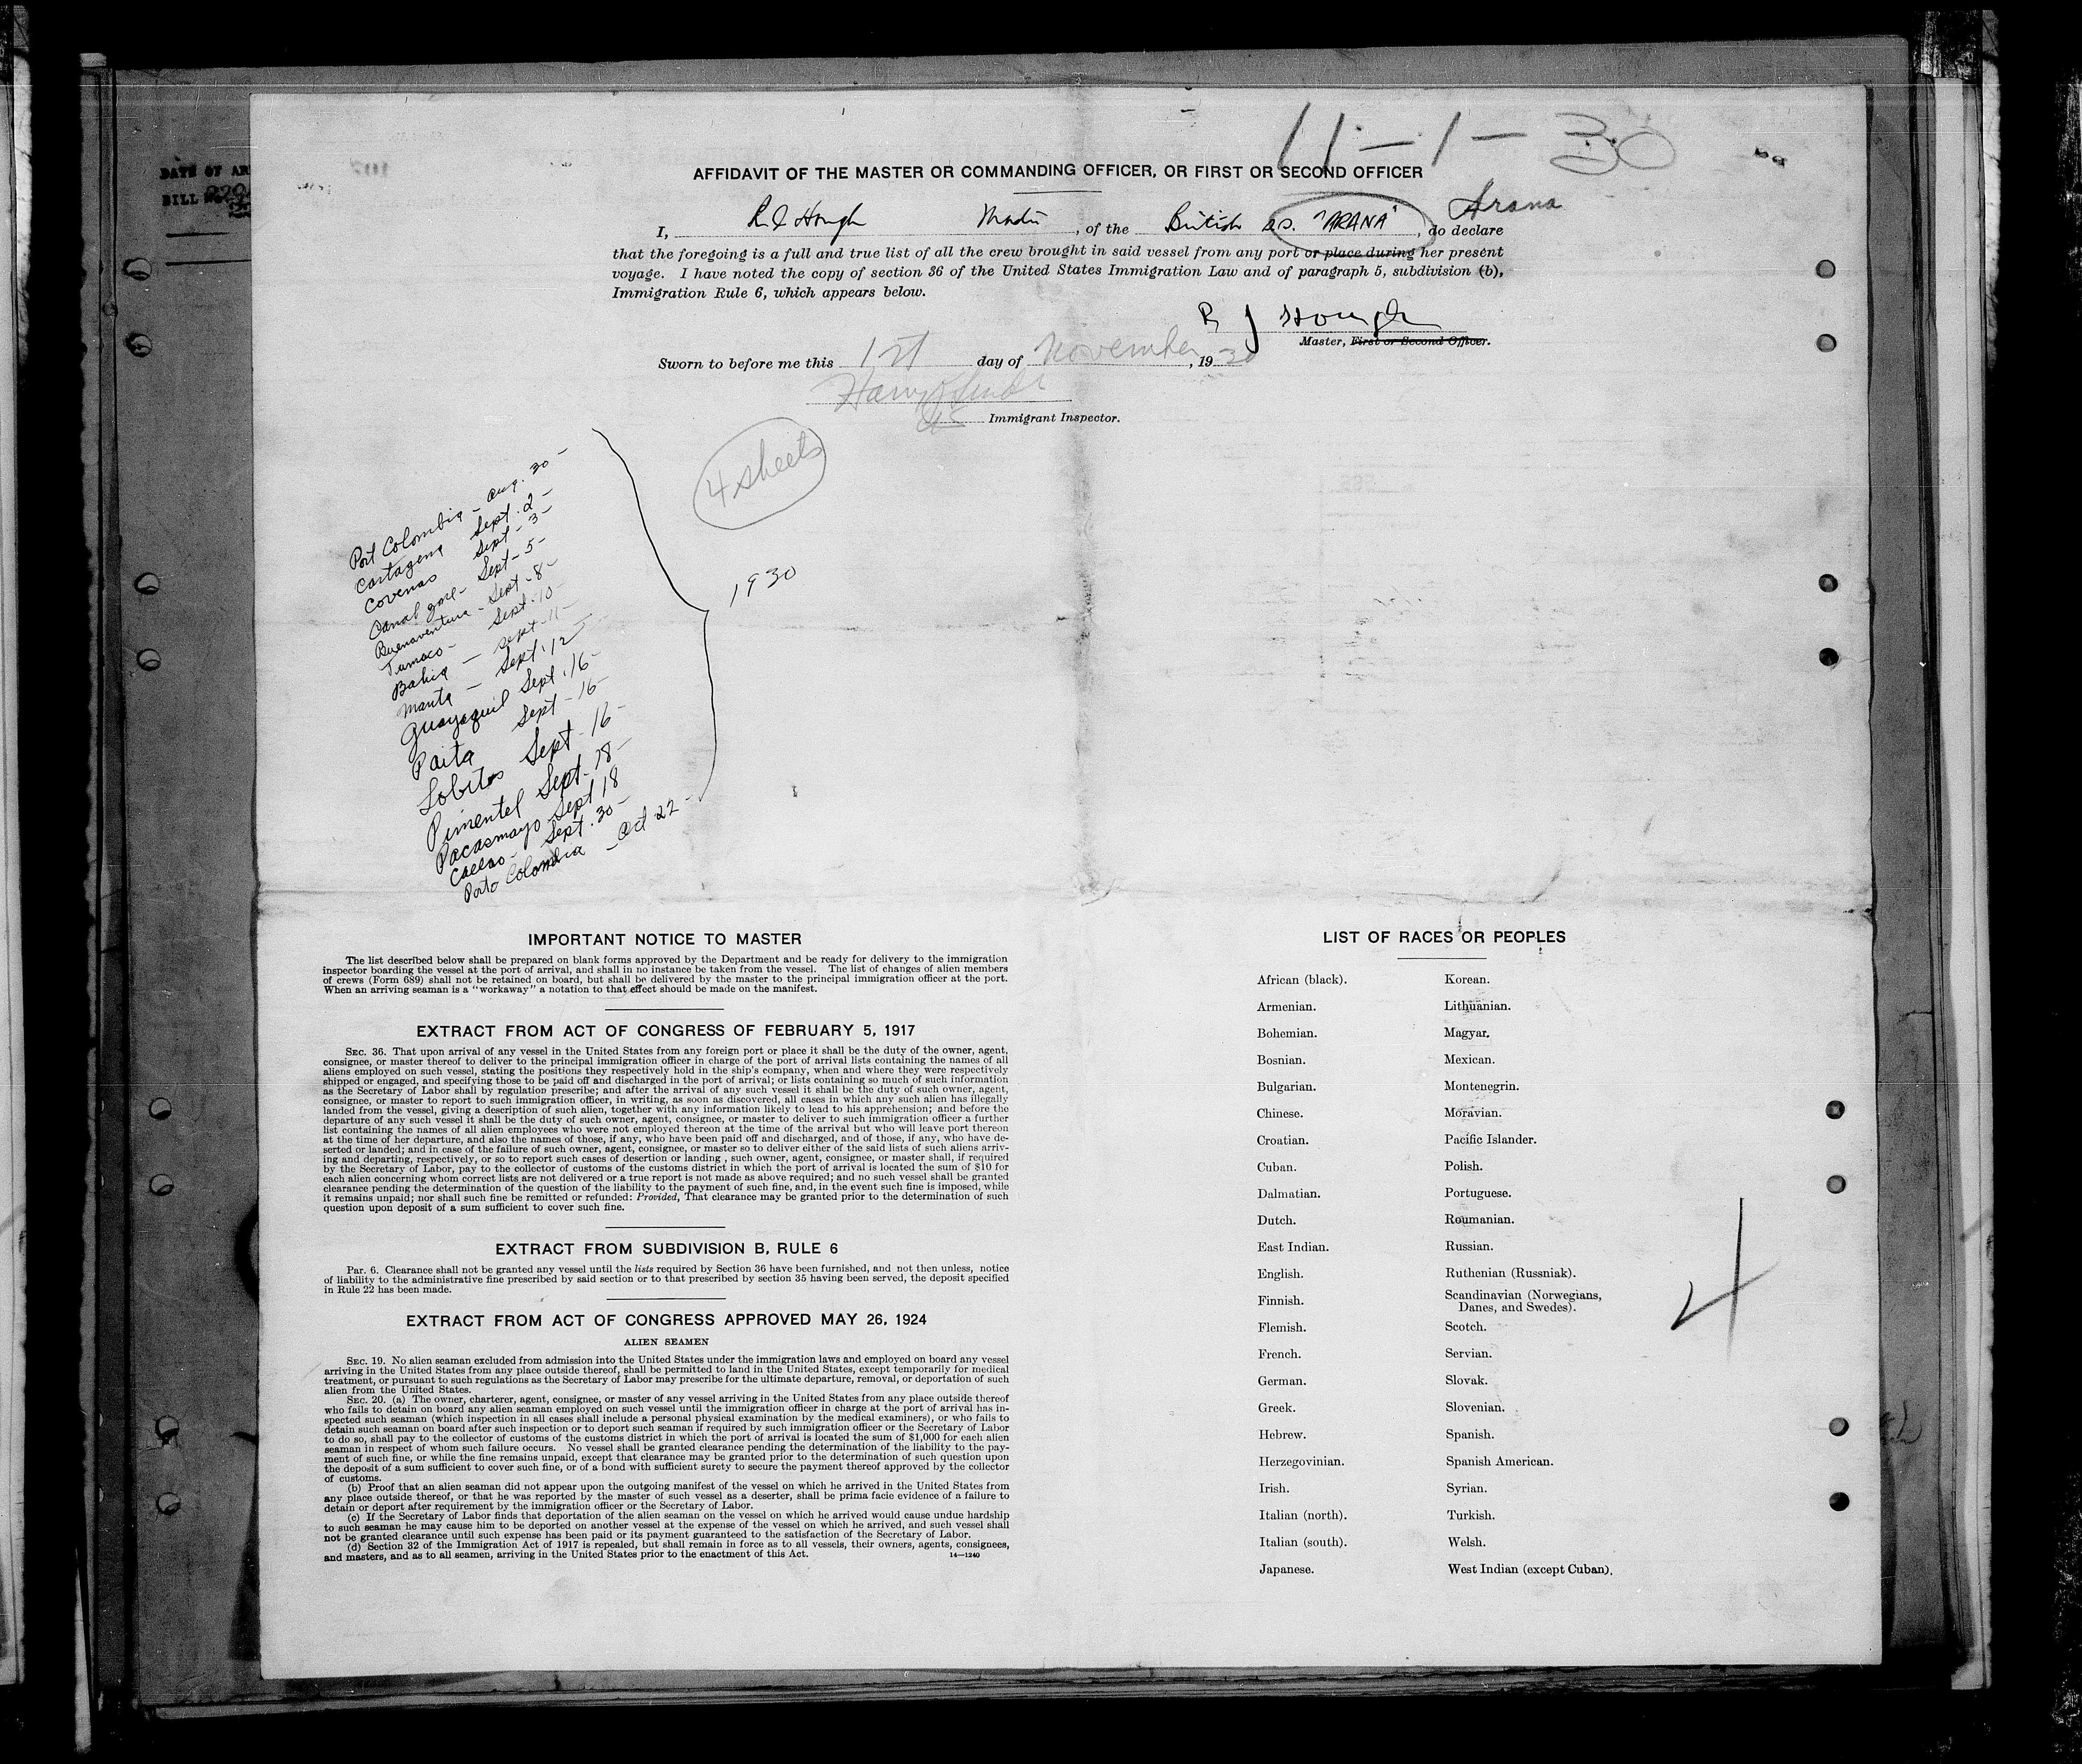 11-1-30
DATE OF AR
BILL
AFFIDAVIT OF THE MASTER OR COMMANDING OFFICER, OR FIRST OR SECOND OFFICER
Arana
I, R J Hough Master, of the British S.S. "ARANA", do declare
that the foregoing is a full and true list of all the crew brought in said vessel from any port or place during her present
voyage. I have noted the copy of section 36 of the United States Immigration Law and of paragraph 5, subdivision (b),
Immigration Rule 6, which appears below.
R J Hough
Master, First or Second Officer.
Sworn to before me this 1st day of November, 1930
Immigrant Inspector.
4 sheets
Port Colombia - Aug. 30 -
Cartagena Sept. 2 -
Covenas Sept - 3 -
Canal Zone - Sept - 5 -
Buenaventura - Sept - 8 -
Tumaco - Sept - 10 -
Bahia - Sept - 11 -
Manta - Sept. 12
Guayaquil Sept. 16 -
Paita Sept - 16 -
Lobitos Sept - 16 -
Pimentel Sept - 18 -
Pacasmayo - Sept 18
Callao - Sept. 30 -
Porto Colombia - Oct 22 -
1930
IMPORTANT NOTICE TO MASTER
The list described below shall be prepared on blank forms approved by the Department and be ready for delivery to the immigration
inspector boarding the vessel at the port of arrival, and shall in no instance be taken from the vessel. The list of changes of alien members
of crews (Form 689) shall not be retained on board, but shall be delivered by the master to the principal immigration officer at the port.
When an arriving seaman is a "workaway" a notation to that effect should be made on the manifest.
EXTRACT FROM ACT OF CONGRESS OF FEBRUARY 5, 1917
SEC. 36. That upon arrival of any vessel in the United States from any foreign port or place it shall be the duty of the owner, agent,
consignee, or master thereof to deliver to the principal immigration officer in charge of the port of arrival lists containing the names of all
aliens employed on such vessel, stating the positions they respectively hold in the ship's company, when and where they were respectively
shipped or engaged, and specifying those to be paid off and discharged in the port of arrival; or lists containing so much of such information
as the Secretary of Labor shall by regulation prescribe; and after the arrival of any such vessel it shall be the duty of such owner, agent,
consignee, or master to report to such immigration officer, in writing, as soon as discovered, all cases in which any such alien has illegally
landed from the vessel, giving a description of such alien, together with any information likely to lead to his apprehension; and before the
departure of any such vessel it shall be the duty of such owner, agent, consignee, or master to deliver to such immigration officer a further
list containing the names of all alien employees who were not employed thereon at the time of the arrival but who will leave port thereon
at the time of her departure, and also the names of those, if any, who have been paid off and discharged, and of those, if any, who have de-
serted or landed; and in case of the failure of such owner, agent, consignee, or master so to deliver either of the said lists of such aliens arriv-
ing and departing, respectively, or so to report such cases of desertion or landing , such owner, agent, consignee, or master shall, if required
by the Secretary of Labor, pay to the collector of customs of the customs district in which the port of arrival is located the sum of $10 for
each alien concerning whom correct lists are not delivered or a true report is not made as above required; and no such vessel shall be granted
clearance pending the determination of the question of the liability to the payment of such fine, and, in the event such fine is imposed, while
it remains unpaid; nor shall such fine be remitted or refunded: Provided, That clearance may be granted prior to the determination of such
question upon deposit of a sum sufficient to cover such fine.
EXTRACT FROM SUBDIVISION B, RULE 6
Par. 6. Clearance shall not be granted any vessel until the lists required by Section 36 have been furnished, and not then unless, notice
of liability to the administrative fine prescribed by said section or to that prescribed by section 35 having been served, the deposit specified
in Rule 22 has been made.
EXTRACT FROM ACT OF CONGRESS APPROVED MAY 26, 1924
ALIEN SEAMEN
SEC. 19. No alien seaman excluded from admission into the United States under the immigration laws and employed on board any vessel
arriving in the United States from any place outside thereof, shall be permitted to land in the United States, except temporarily for medical
treatment, or pursuant to such regulations as the Secretary of Labor may prescribe for the ultimate departure, removal, or deportation of such
alien from the United States.
SEC. 20. (a) The owner, charterer, agent, consignee, or master of any vessel arriving in the United States from any place outside thereof
who fails to detain on board any alien seaman employed on such vessel until the immigration officer in charge at the port of arrival has in-
spected such seaman (which inspection in all cases shall include a personal physical examination by the medical examiners), or who fails to
detain such seaman on board after such inspection or to deport such seaman if required by such immigration officer or the Secretary of Labor
to do so, shall pay to the collector of customs of the customs district in which the port of arrival is located the sum of $1,000 for each alien
seaman in respect of whom such failure occurs. No vessel shall be granted clearance pending the determination of the liability to the pay-
ment of such fine, or while the fine remains unpaid, except that clearance may be granted prior to the determination of such question upon
the deposit of a sum sufficient to cover such fine, or of a bond with sufficient surety to secure the payment thereof approved by the collector
of customs.
(b) Proof that an alien seaman did not appear upon the outgoing manifest of the vessel on which he arrived in the United States from
any place outside thereof, or that he was reported by the master of such vessel as a deserter, shall be prima facie evidence of a failure to
detain or deport after requirement by the immigration officer or the Secretary of Labor.
(c) If the Secretary of Labor finds that deportation of the alien seaman on the vessel on which he arrived would cause undue hardship
to such seaman he may cause him to be deported on another vessel at the expense of the vessel on which he arrived, and such vessel shall
not be granted clearance until such expense has been paid or its payment guaranteed to the satisfaction of the Secretary of Labor.
(d) Section 32 of the Immigration Act of 1917 is repealed, but shall remain in force as to all vessels, their owners, agents, consignees,
and masters, and as to all seamen, arriving in the United States prior to the enactment of this Act.
14—1240
LIST OF RACES OR PEOPLES
African (black).
Armenian.
Bohemian.
Bosnian.
Bulgarian.
Chinese.
Croatian.
Cuban.
Dalmatian.
Dutch.
East Indian.
English.
Finnish.
Flemish.
French.
German.
Greek.
Hebrew.
Herzegovinian.
Irish.
Italian (north).
Italian (south).
Japanese.
Korean.
Lithuanian.
Magyar.
Mexican.
Montenegrin.
Moravian.
Pacific Islander.
Polish.
Portuguese.
Roumanian.
Russian.
Ruthenian (Russniak).
Scandinavian (Norwegians,
Danes, and Swedes).
Scotch.
Servian.
Slovak.
Slovenian.
Spanish.
Spanish American.
Syrian.
Turkish.
Welsh.
West Indian (except Cuban).
4